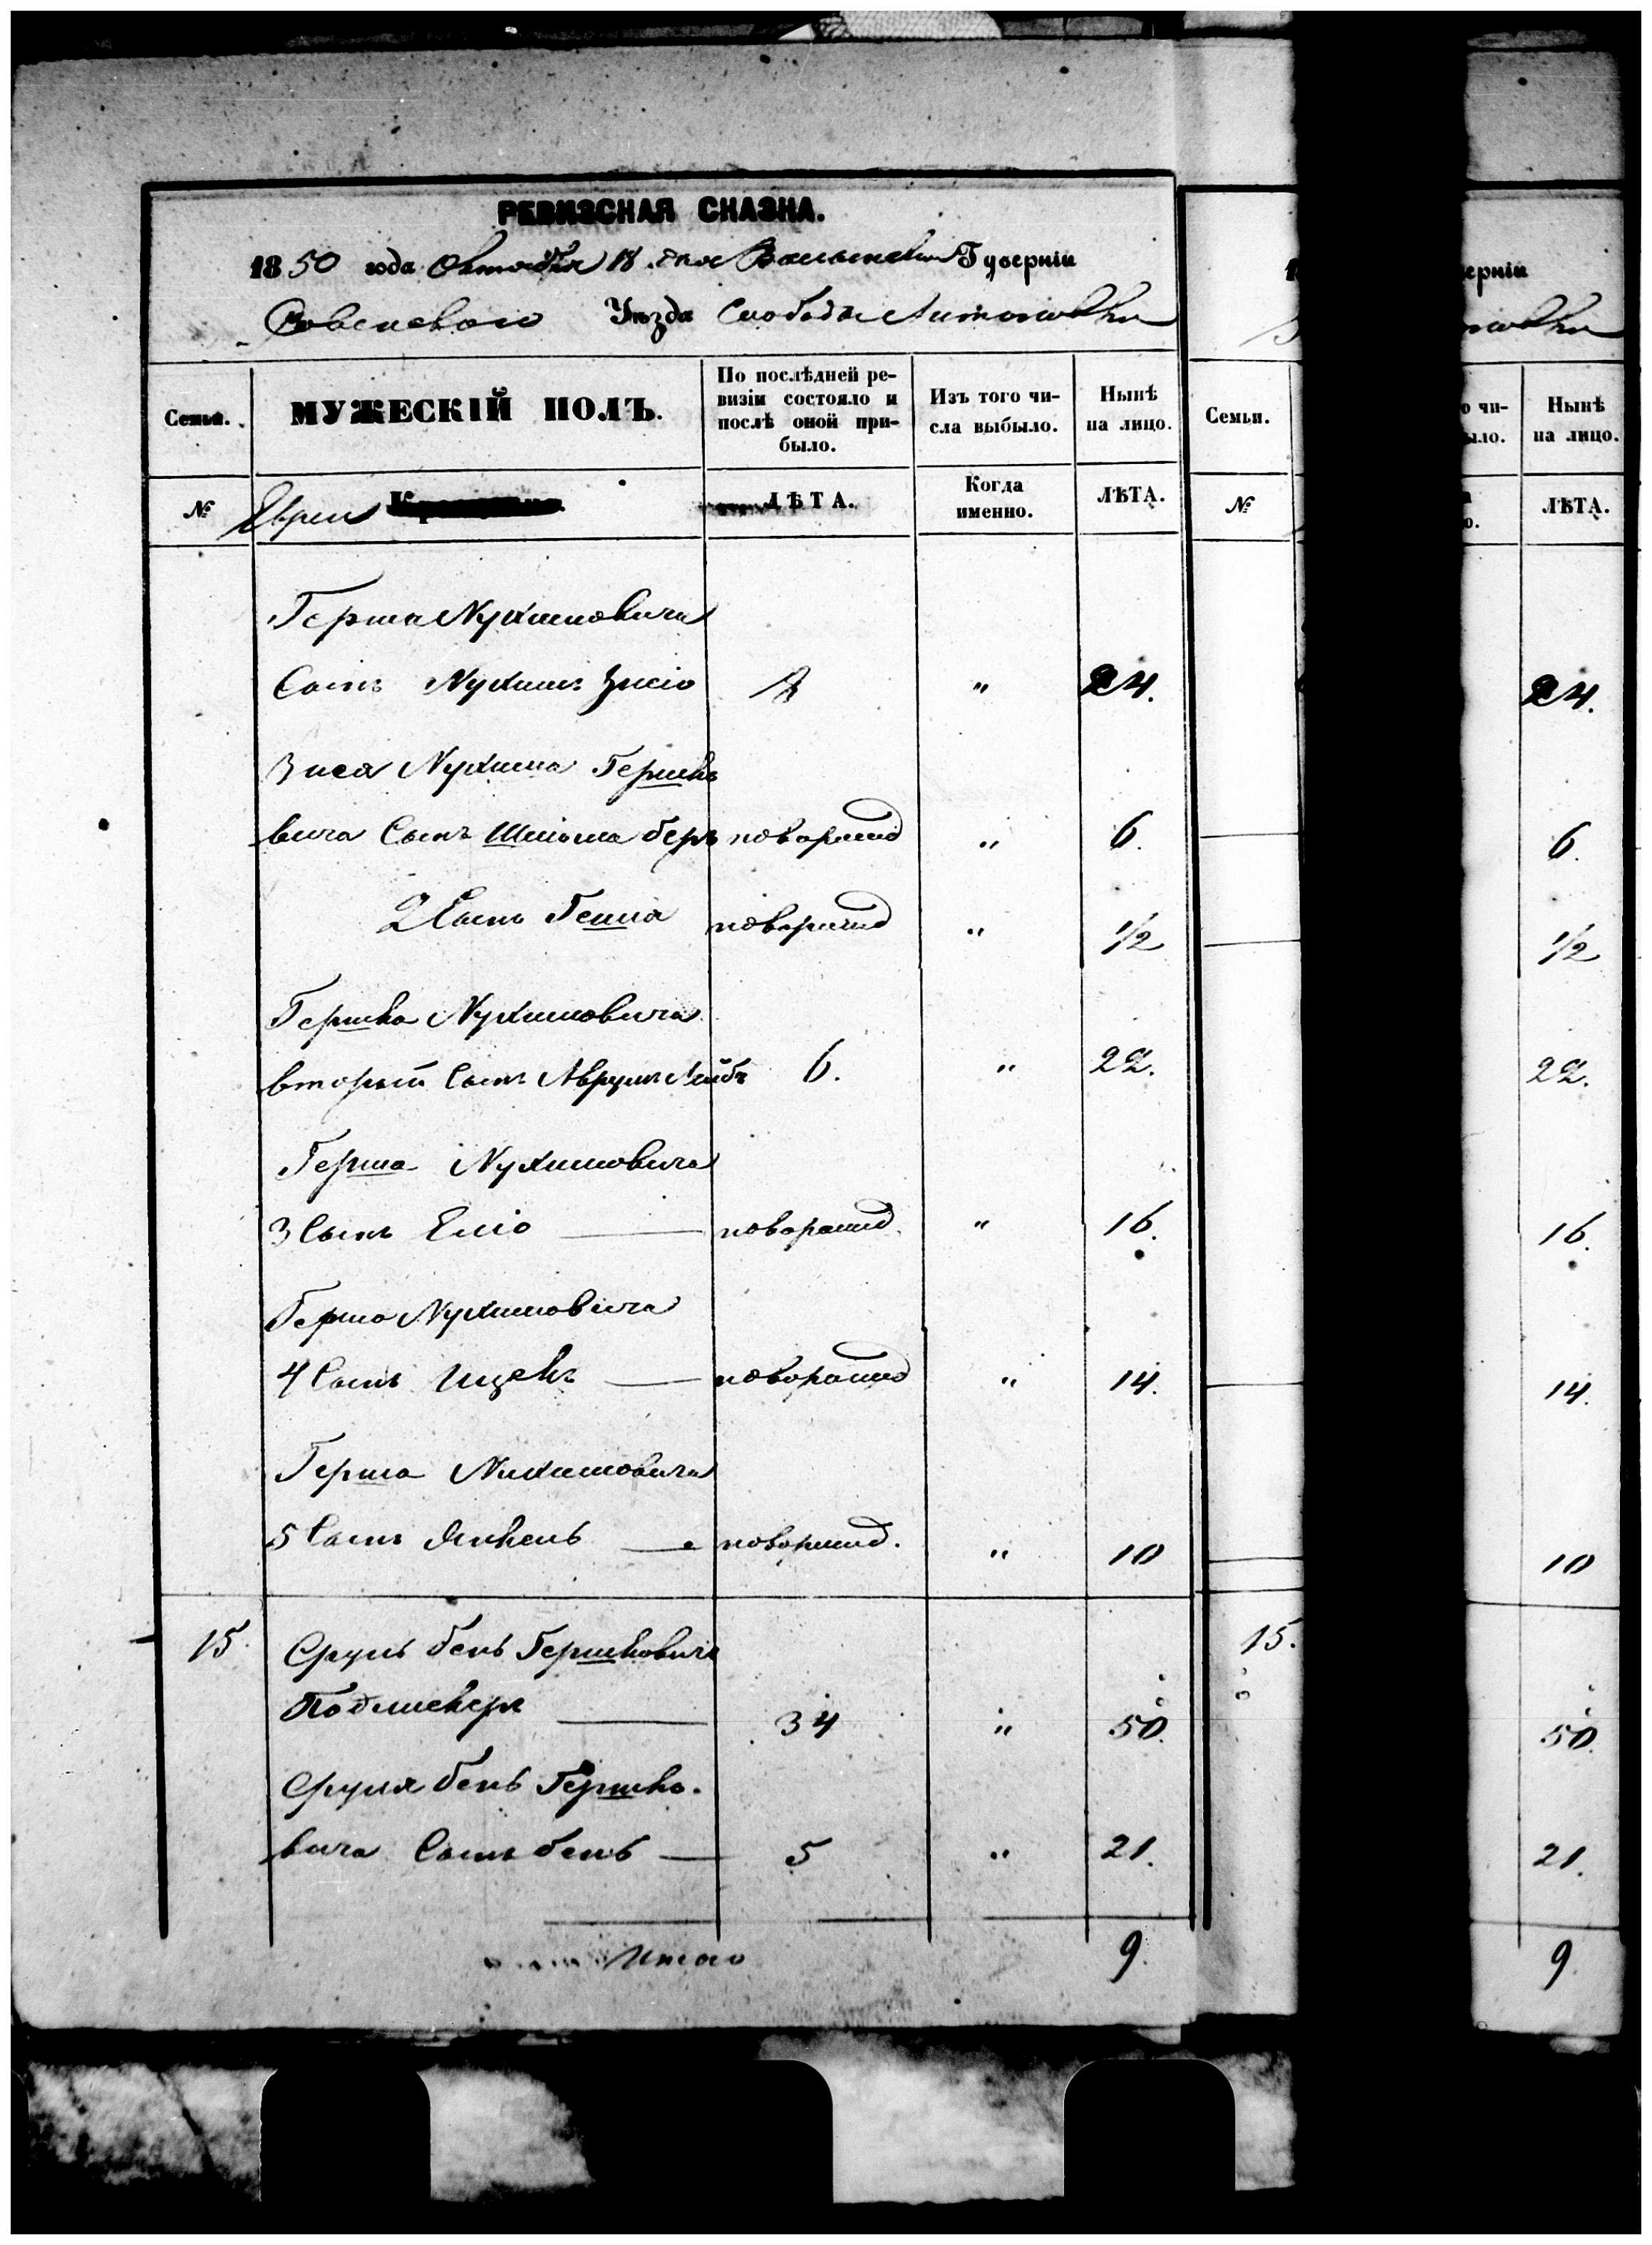 РЕВИЗСКАЯ СКАЗКА.
1850 года Октября 18 дня Волынской Губерніи
Ровенского Уѣзда Слободы Антоновки
Семьи. МУЖЕСКІЙ ПОЛЪ. По послѣдней ре-визіи состояло и послѣ оной при-было. Изъ того чи-сла выбыло. Нынѣ на лицо. Семьи.
№ Евреи ЛѢТА. Когда именно. ЛѢТА. №
Герша Нухимовича
Сынъ Нухимъ Зисю " 24.
Зися Нухима Гершко
вича Сынъ Шлiома Беръ новорожд " 6.
2 Сынъ новорожд " 1/2
Гершка Нухимовича
вторый Сынъ Аврумъ Лейбъ 6. " 22.
Герша Нухимовича
3 Сынъ Еліо новорожд. " 16.
Герша Нухимовича
4 Сынъ Ицекъ новорожд " 14.
Герша Нихимовича
5 Сынъ Янкель новорожд. " 10
15 Сруль Бень Гершковичъ
34 " 50.
Сруля Бень Гершко-
вича Сынъ Бень 5 " 21.
Итого 9.
ерніи
Нынѣ на лицо.
ЛѢТА.
24.
6.
1/2
22.
16.
14.
10
15.
50.
21.
9.